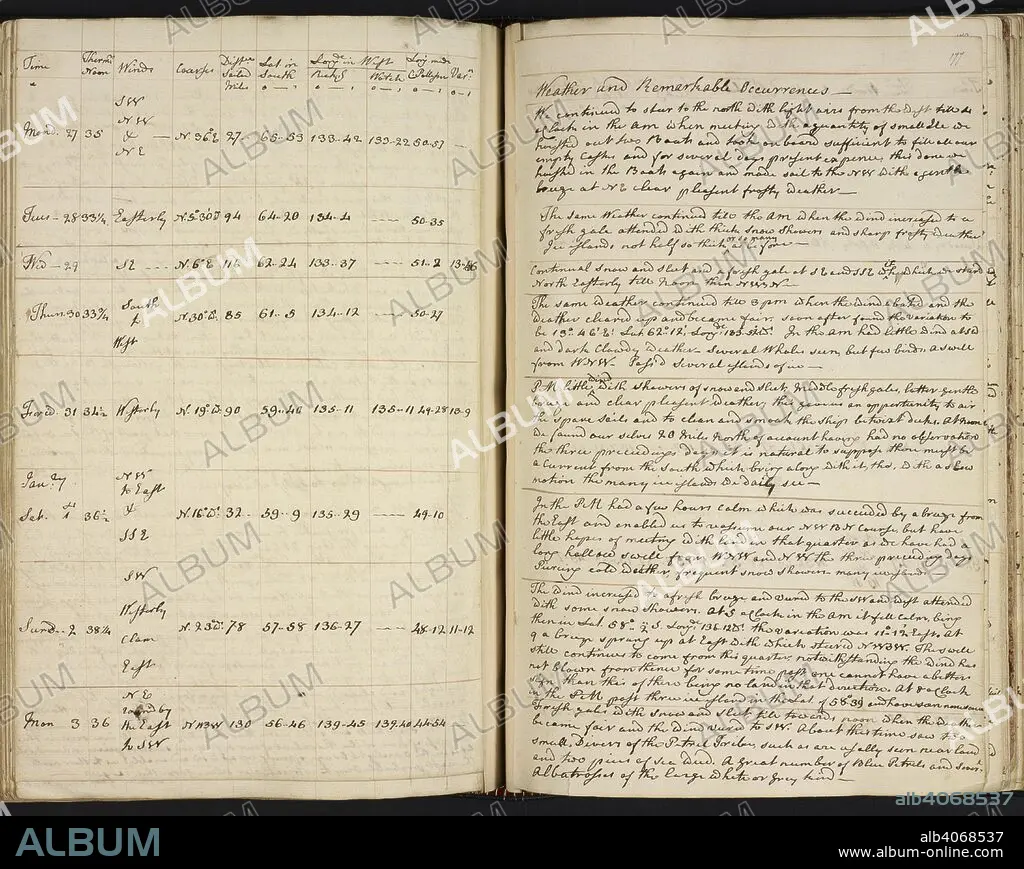 Time Therm.r Noon Winds Courses Dist.ce Sailed Miles Lat in South Long.de West Reck.g Watch Long made C. Pallisser Var.n
Mond. 27 35 SW NW & NE N. 36 E 27 65-53 133-42 133-22 50-57
Tues - 28 33¼ Easterly 94 64-20 134-4 ---- 50-35
Wed - 29 SE --- N. 6 E 62-24 133-37 ---- 51-2
Thurs 30 33¾ South to West N. 30 85 61-5 134-12 ---- 50-27
31 34½ Westerly N. 19 90 59-40 135-11 135-11 49-28 13-9
Jan.y
Sat. 1 36½ NW to East & SSE N. 16 32- 59-9 135-29 49-10
Sund. 2 38¼ SW Westerly Clam East N. 23 78 57-58 136-27 48-12 11-12
Mon 3 36 NE round by the East to SW NW 130 56-46 139-45 139-40 44-54
177
Weather and Remarkable Occurrences
We continued to steer to the north with light airs from the West till
oClock in the AM when meeting with a quantity of small Ice we
hoisted out two Boats and took on board sufficient to fill all our
empty Casks and for several days present expence, this done we
hoisted in the Boats again and made sail to the NW with a gentle
breeze at NE clear pleasent frosty weather
The same Weather continued till the AM when the wind increased to a
fresh gale attended with thick snow showers and sharp frosty weather
Ice islands not half so thick or so many as before
Continual snow and sleet and a fresh gale at SE and SSE with which we steer'd
North Easterly till Noon then NWBN
The same weather continued till 8 pm when the wind abated and the
weather cleared up and became fair, soon after found the variation to
be 13° 46' E. Lat 62° 12' Long.de In the AM had little wind
and dark Clowdy weather Several Whales seen, but few birds. A swell
from WNW. Pass'd several islands of ice
PM little wind with showers of snow and sleet, Middle fresh gales, latter gentle
breeze and clear pleasent weather, this gave us an opportunity to air
the spare sails and to clean and smoak the ship betwixt decks. At noon
we found our selves 20 Miles North of account having had no observation
the three preceeding days, it is natural to suppose there must be
a Current from the South which bring along with it, tho, with a slow
motion the many ice islands we daily see
In the PM had a few hours calm which was succeeded by a breeze from
the East and enabled us to reassume our NWBN Course but have
little hopes of meeting with land in that quarter as we have had a
long hollow swell from WNW and NW the three preceeding days
Piercing cold weather frequent snow showers many ice islands
The wind increased to a fresh breeze and veered to the SW and West attended
with some snow showers. At 5 oClock in the AM it fell calm, being
then in Lat. 58° 2' S. Long.de the variation was 11° 12' East. At
9 a breeze sprung up at East with which steered NWBW. The swell
still continues to come from this quarter, notwithstanding the wind has
not blown from thence for some time past, one cannot have a better
sign than this of there being no land in that direction. At 8 oClock
in the PM past three ice islands in the Lat of 58-39 and have seen none since
Fresh gales with snow and sleet till towards noon when the weather
became fair and the wind veered to SW. About this time saw two
small Divers of the Petrel Tribe, such as are usally seen near land
and two pieces of sea weed. A great number of Blue Petrels and some
Albatrosses of the large white or grey kind
ALBUM
alb4068537
www.album-online.com